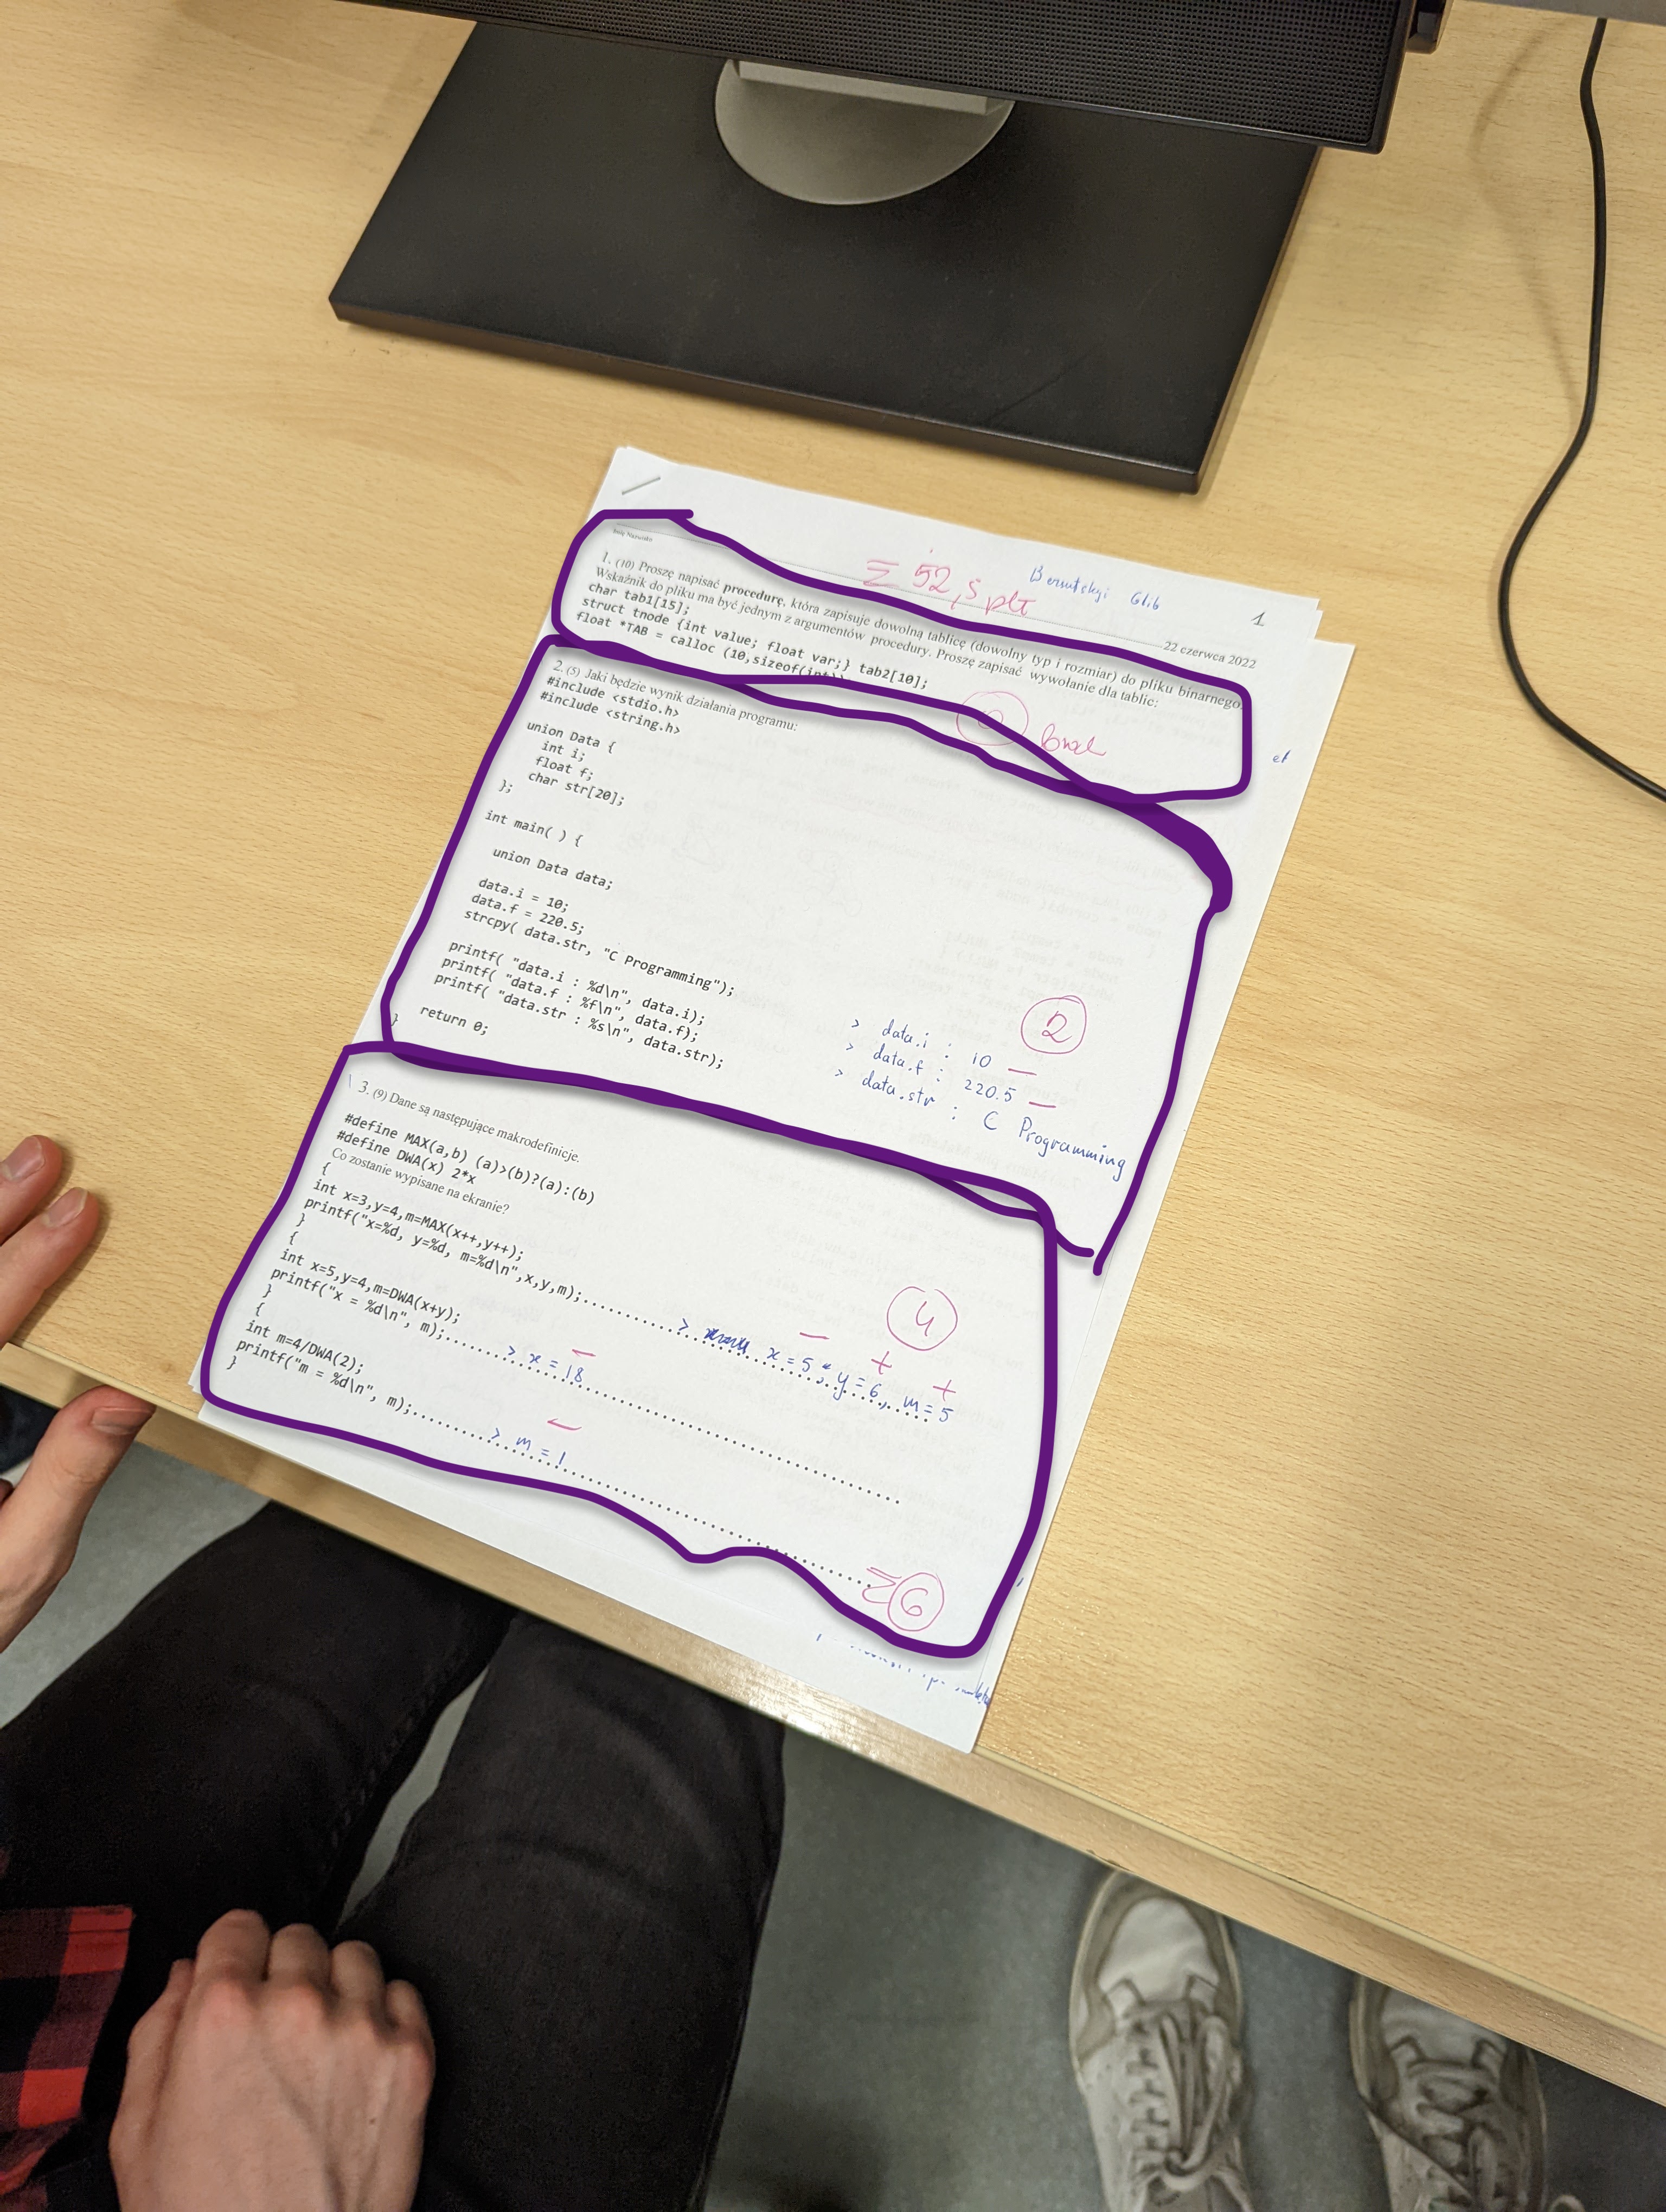 Imię Nazwisko
Σ 52,5 pkt
1
22 czerwca 2022
1. (10) Proszę napisać procedurę, która zapisuje dowolną tablicę (dowolny typ i rozmiar) do pliku binarnego.
Wskaźnik do pliku ma być jednym z argumentów procedury. Proszę zapisać wywołanie dla tablic:
char tab1[15];
struct tnode {int value; float var;} tab2[10];
float *TAB = calloc (10,sizeof(int));
0 brak
2. (5) Jaki będzie wynik działania programu:
#include <stdio.h>
#include <string.h>
union Data {
int i;
float f;
char str[20];
};
int main( ) {
union Data data;
data.i = 10;
data.f = 220.5;
strcpy( data.str, "C Programming");
printf( "data.i : %d\n", data.i);
printf( "data.f : %f\n", data.f);
printf( "data.str : %s\n", data.str);
return 0;
}
2
> data.i : 10 —
> data.f : 220.5 —
> data.str : C Programming
3. (9) Dane są następujące makrodefinicje.
#define MAX(a,b) (a)>(b)?(a):(b)
#define DWA(x) 2*x
Co zostanie wypisane na ekranie?
{
int x=3,y=4,m=MAX(x++,y++);
printf("x=%d, y=%d, m=%d\n",x,y,m);.......... > x = 5, y = 6, m = 5
— + +
4
}
{
int x=5,y=4,m=DWA(x+y);
printf("x = %d\n", m);.......... > x = 18
—
}
{
int m=4/DWA(2);
printf("m = %d\n", m);.......... > m = 1
—
}
Σ 6